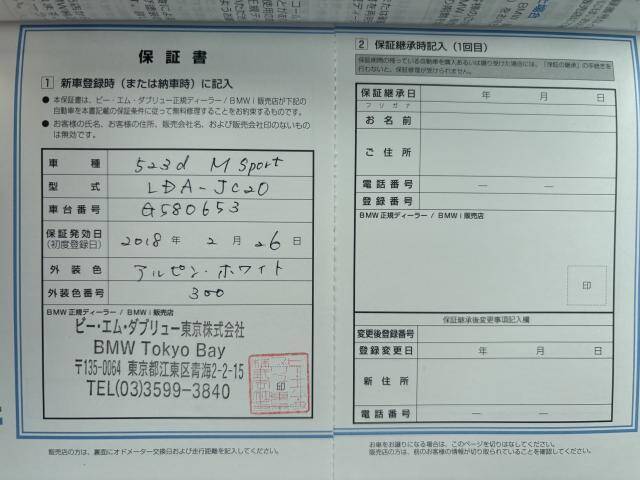 保証書
1 新車登録時（または納車時）に記入
● 本保証書は、ビー・エム・ダブリュー正規ディーラー / BMW i 販売店が下記の
自動車を本書記載の保証条件に従って無料修理することをお約束するものです。
● お客様の氏名、お客様の住所、販売会社名、および販売会社印のないもの
は無効です。
車種 523d M Sport
型式 LDA-JC20
車台番号 G580653
保証発効日
(初度登録日) 2018 年 2 月 26 日
外装色 アルピン・ホワイト
外装色番号 300
BMW 正規ディーラー / BMW i 販売店
ビー・エム・ダブリュー東京株式会社
BMW Tokyo Bay
〒135-0064 東京都江東区青海2-2-15
TEL(03)3599-3840
印
販売店の方は、裏面にオドメーター交換日および走行距離を記入してください。
2 保証継承時記入（1回目）
保証期間の残っている自動車を購入あるいは譲り受けた場合には、「保証の継承」の手続きを
行わないと、保証修理が受けられません。
保証継承日 年 月 日
フリガナ
お名前
ご住所
電話番号 ― ―
登録番号
BMW 正規ディーラー / BMW i 販売店
印
保証継承後変更事項記入欄
変更後登録番号
登録変更日 年 月 日
新住所
電話番号 ― ―
お車をお譲りになる場合は、このページを切りはなしてください。
販売店の方は、前のお客様の情報が切り取られていることを確認してください。